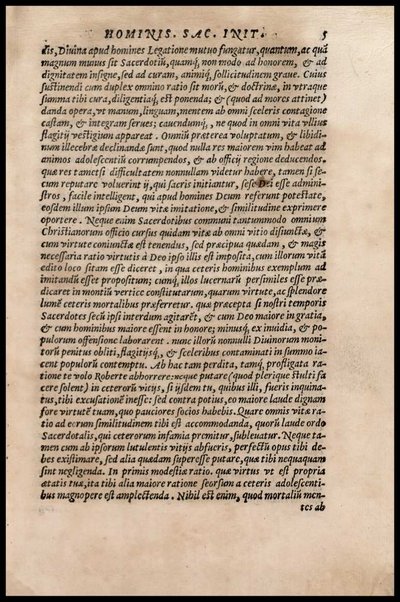 HOMINIS. SAC. INIT. 5
dis, Diuina apud homines Legatione mutuo fungatur, quantum, ac quã
magnum munus sit Sacerdotiũ, quamq́, non modo ad honorem, & ad
dignitatem insigne, sed ad curam, animiq́, sollicitudinem graue. Cuius
sustinendi cum duplex omnino ratio sit morũ, & doctrinæ, in vtraque
summa tibi cura, diligentiaq́, est ponenda; & (quod ad mores attinet)
danda opera, vt manum, linguam, mentem ab omni sceleris contagione
castam, & integram serues; cauendumq́, ne quod in omni vita vllius
flagitij vestigium appareat. Omniũ præterea voluptatum, & libidi-
num illecebræ declinandæ sunt, quod nulla res maiorem vim habeat ad
animos adolescentiũ corrumpendos, & ab officij regione deducendos.
quæ res tametsi difficultatem nonnullam videtur habere, tamen si se-
cum reputare voluerint ij, qui sacris initiantur, sese Dei esse admini-
stros, facile intelligent, qui apud homines Deum referunt potestate,
eosdem illum ipsum Deum vitæ imitatione, & similitudine exprimere
oportere. Neque enim Sacerdotibus communi tantummodo omnium
Christianorum officio cursus quidam vitæ ab omni vitio disiunctæ, &
cum virtute coniunctæ est tenendus, sed præcipua quædam, & magis
necessaria ratio virtutis à Deo ipso illis est imposita, cum illorum vitã
edito loco sitam esse diceret, in qua ceteris hominibus exemplum ad
imitandũ esset propositum; cumq́, illos lucernarũ persimiles esse præ-
dicaret in montiũ vertice constitutarum, quarum virtute, ac splendore
lumẽ ceteris mortalibus præferretur. quæ præcepta si nostri temporis
Sacerdotes secũ ipsi interdum agitarẽt, & cum Deo maiore in gratia,
& cum hominibus maiore essent in honore; minusq́, ex inuidia, & po-
pulorum offensione laborarent. nunc illorũ nonnulli Diuinorum moni-
torũ penitus obliti, flagitijsq́, & sceleribus contaminati in summo ia-
cent populorũ contemptu. Ab hac tam perdita, tamq́, profligata ra-
tione te volo Roberte abhorrere: neque putare (quod plerique stulti fa
cere solent) in ceterorũ vitijs, si ijsdem tu, quibus illi, fueris inquina-
tus, tibi excusationẽ inesse: sed contra potius, eo maiore laude dignam
fore virtutẽ tuam, quo pauciores socios habebis. Quare omnis vitæ ra-
tio ad eorum similitudinem tibi est accommodanda, quorũ laude ordo
Sacerdotalis, qui ceterorum infamia premitur, subleuatur. Neque ta-
men cum ab ipsorum lutulentis vitijs abfueris, perfectũ opus tibi de-
bes existimare, sed alia quædam superesse putare, quæ tibi nequaquam
sint negligenda. In primis modestiæ ratio. quæ virtus vt est propria
ætatis tuæ, ita tibi alia maiore ratione seorsum a ceteris adolescenti-
bus magnopere est amplectenda. Nihil est enim, quod mortaliũ men-
tes ab